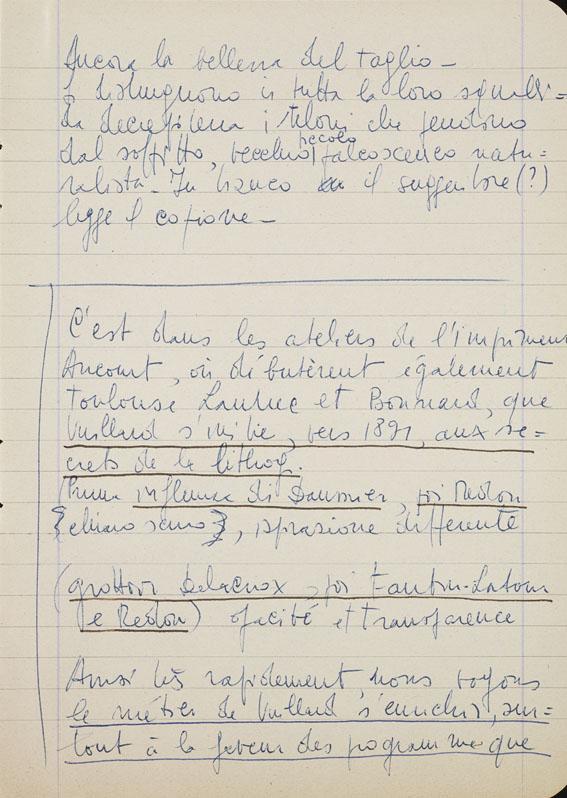 Ancora la bellezza del taglio –
Si distinguono in tutta la loro squalli=
da decrepitezza i teloni che pendono
dal soffitto, vecchio piccolo palcoscenico natu=
ralista. In bianco il suggeritore (?)
legge il copione –
C'est dans les ateliers de l'imprimeur
Ancourt, où débutèrent également
Toulouse Lautrec et Bonnard, que
Vuillard s'initie, vers 1891, aux se=
crets de la lithog.
Prima influenza di Daumier, poi Redon
{chiaro scuro}, ispirazione differente
(grattoir Delacroix, poi Fantin-Latour
e Redon) opacité et transparence
Ainsi très rapidement, nous voyons
le métier de Vuillard s'enrichir, sur=
tout à la faveur des programmes que